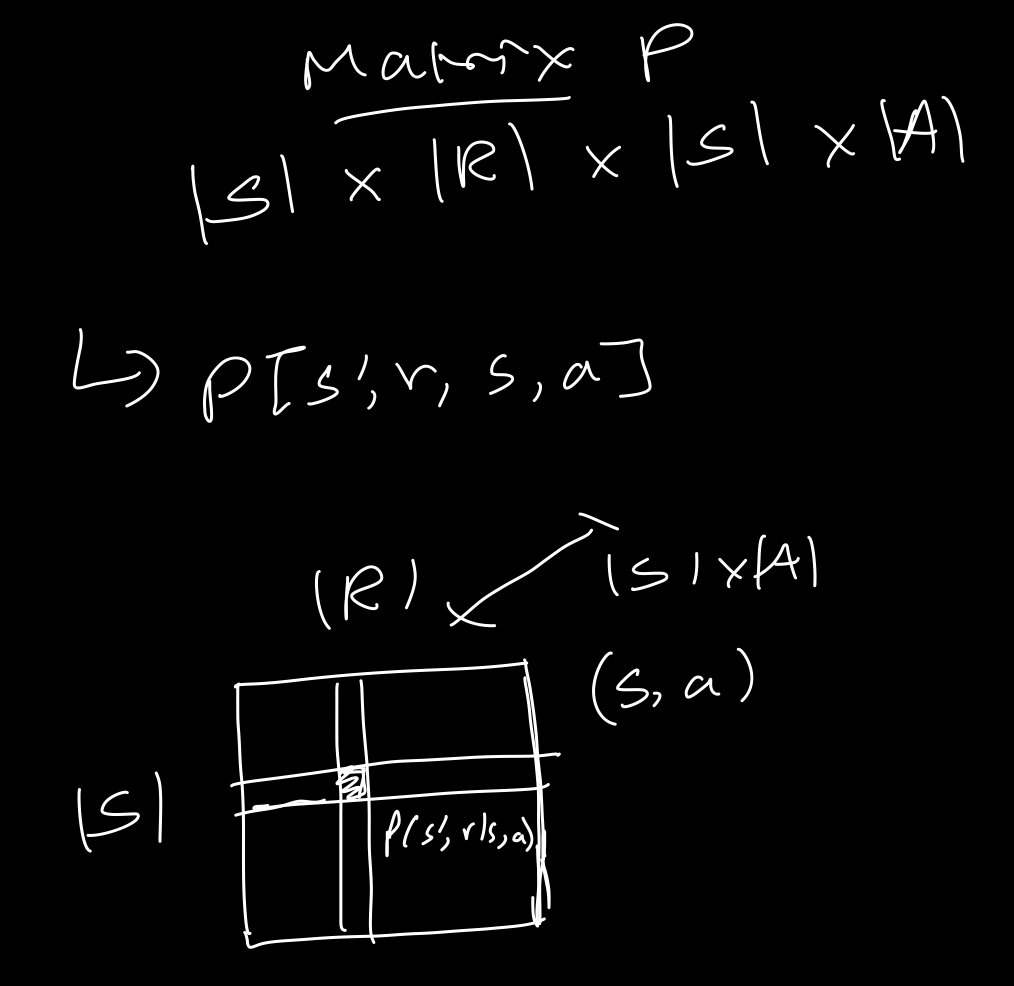 Matrix P
|S| × |R| × |S| × |A|
↳ P[s', r, s, a]
|R|
|S| × |A|
(s, a)
|S|
P(s', r|s, a)